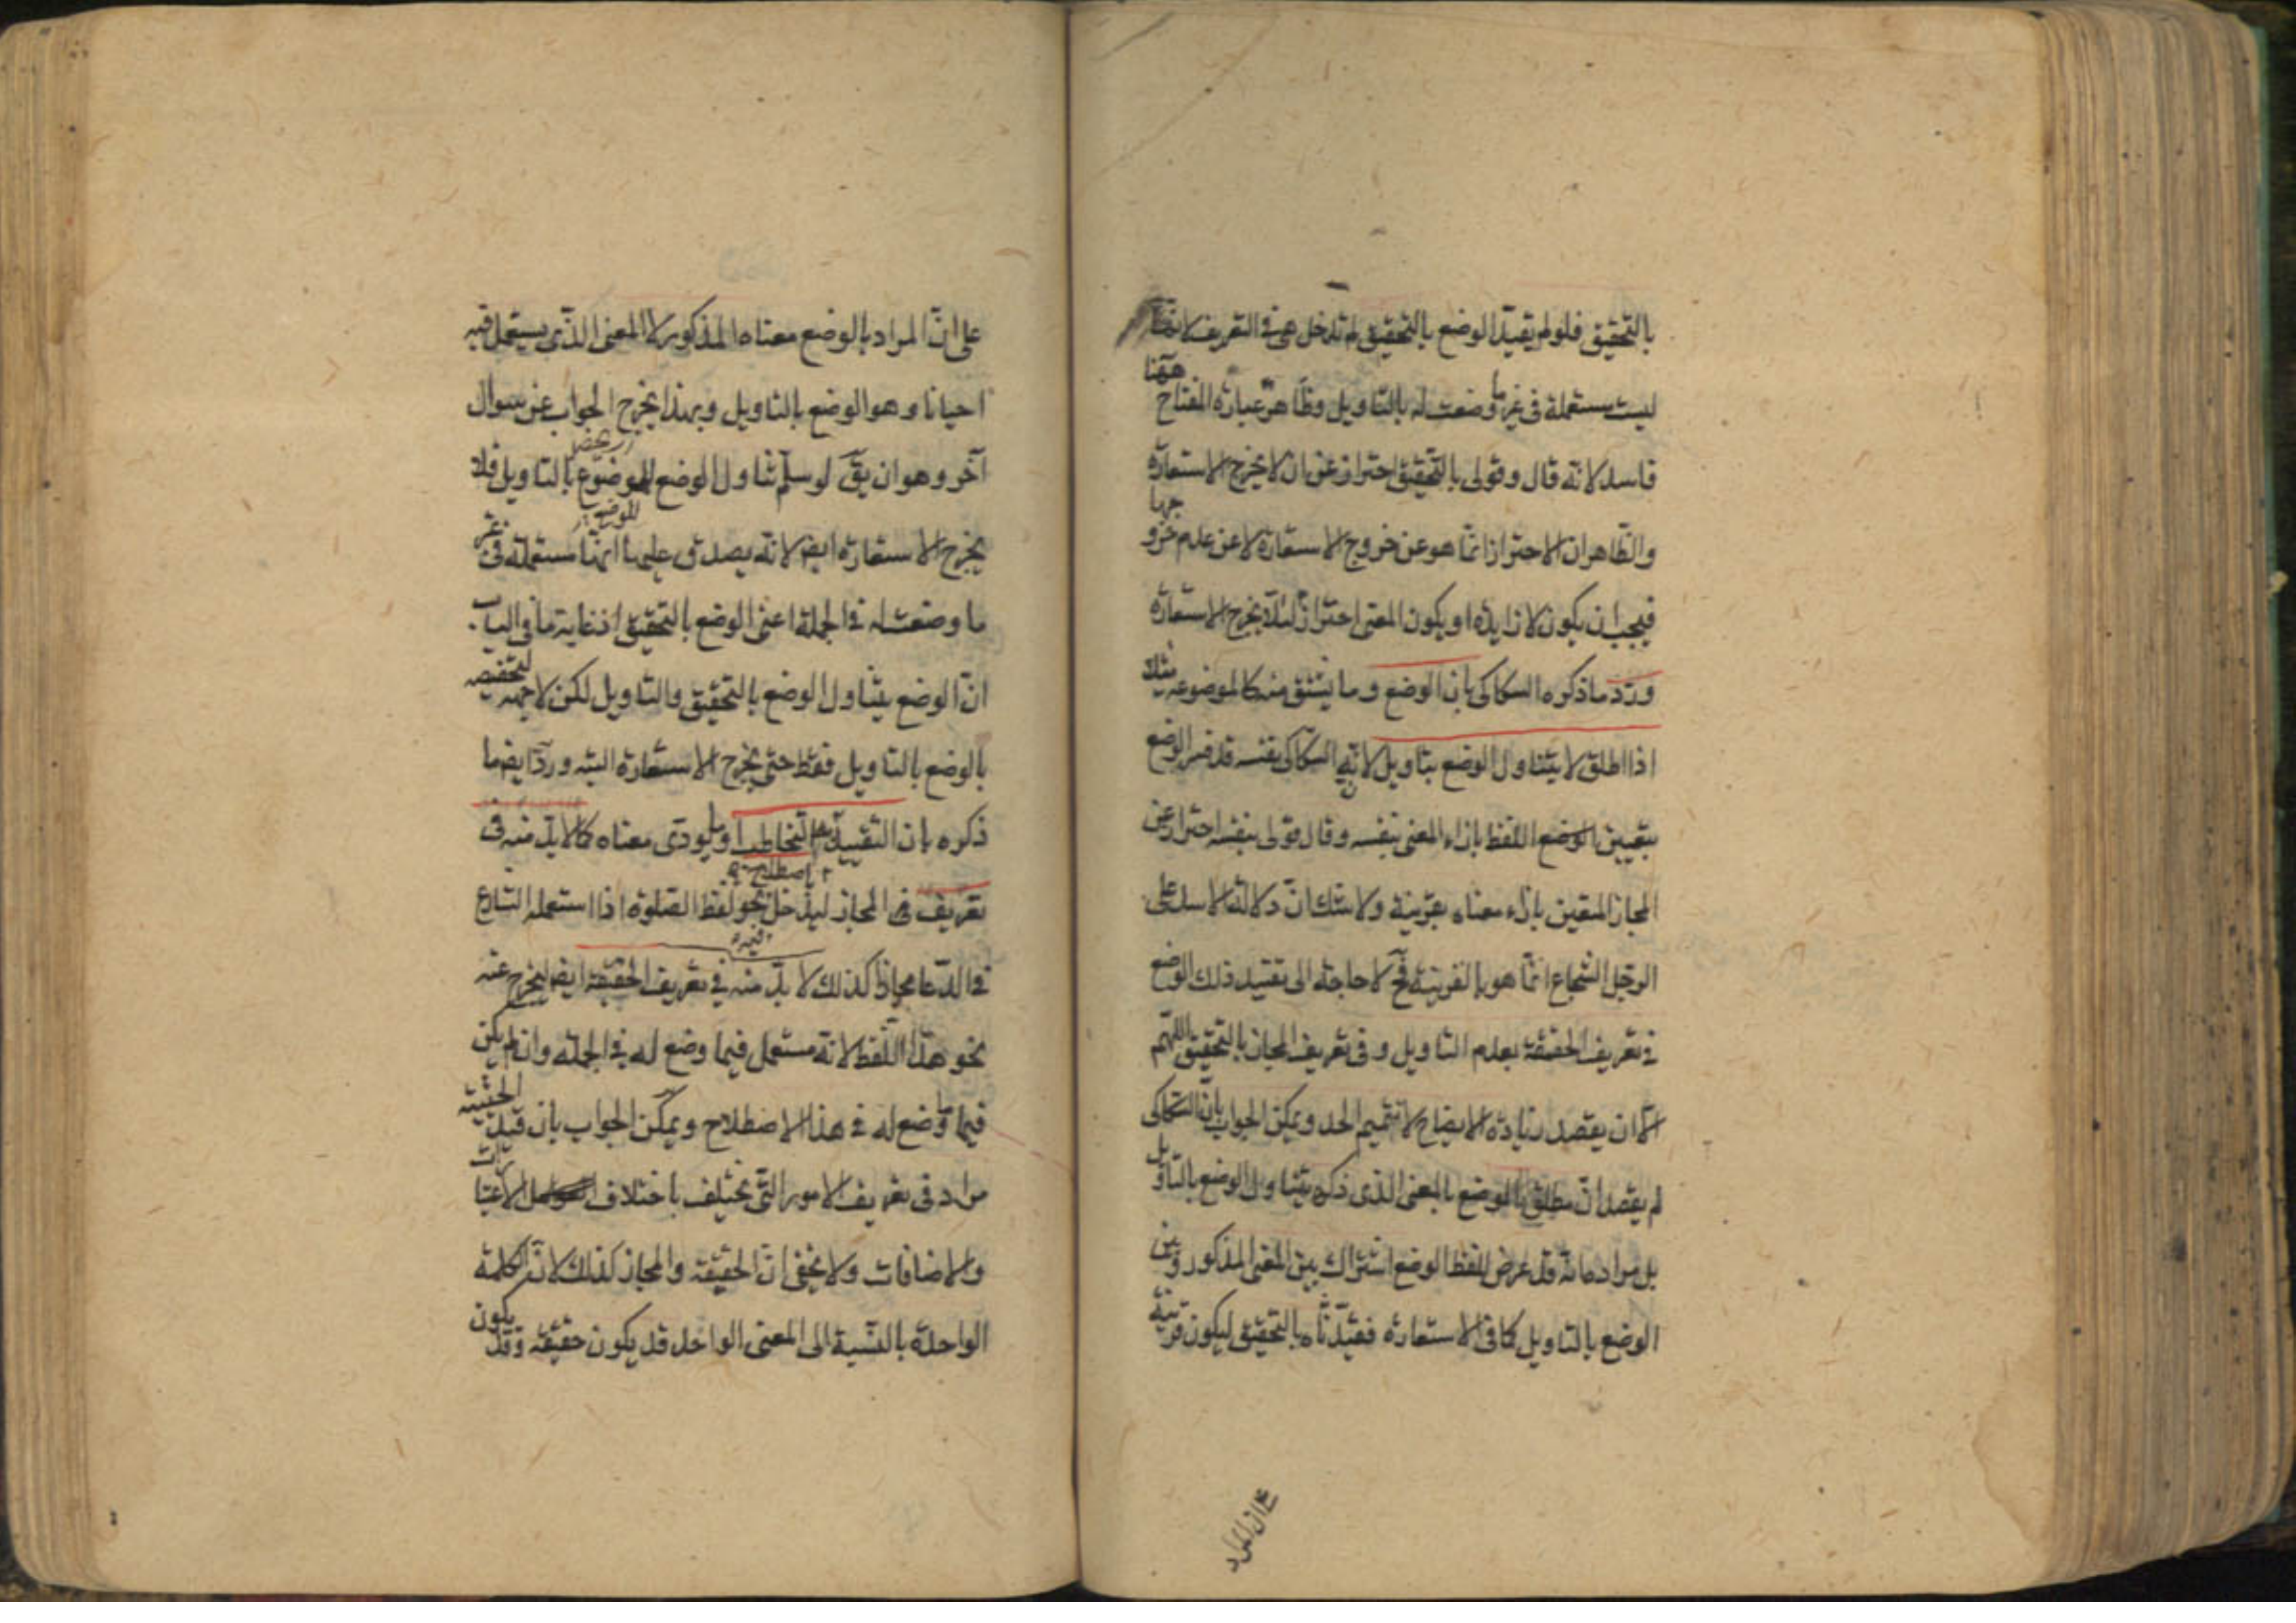 بالتحقيق فلو لم يقيد الوضع بالتحقيق لم تدخل هى فى التعريف لانها
ليست مستعملة فى غير ما وضعت له بالتاويل وظاهر عبارة المفتاح ههنا
فاسد لانه قال وقولى بالتحقيق احتراز عن ان لا يخرج الاستعارة
والظاهر ان الاحتراز انما هو عن خروج الاستعارة لا عن عدم خروجها
فيجب ان يكون لا زايدة او يكون المعنى احترازا لئلا يخرج الاستعارة
ورد ما ذكره السكاكى بان الوضع وما يشتق منه كالموضوعة مثلا
اذا اطلق لا يتناول الوضع بتاويل لان السكاكى نفسه قد فسر الوضع
بتعيين اللفظ بازاء المعنى بنفسه وقال قولى بنفسه احتراز عن
المجاز المتعين بازاء معناه بقرينة ولا شك ان دلالة الاسد على
الرجل الشجاع انما هو بالقرينة فح لا حاجة الى تقييد ذلك الوضع
فى تعريف الحقيقة بعدم التاويل وفى تعريف المجاز بالتحقيق اللهم
الا ان يقصد زيادة الايضاح لا تتميم الحد ويمكن الجواب بان السكاكى
لم يقصد ان مطلق الوضع بالمعنى الذى ذكره يتناول الوضع بالتاويل
بل مراده انه قد عرض للفظ الوضع اشتراك بين المعنى المذكور وبين
الوضع بالتاويل كما فى الاستعارة فقيدناه بالتحقيق ليكون قرينة
على ان المراد بالوضع معناه المذكور لا المعنى الذى يستعمل فيه
احيانا وهو الوضع بالتاويل وبهذا يخرج الجواب عن سوال
آخر وهو ان يق لو سلم تناول الوضع للوضع بالتاويل فلا
يخرج الاستعارة ايض لانه يصدق عليها انها مستعملة فى غير
ما وضعت له فى الجملة اعنى الوضع بالتحقيق اذ غاية ما فى الباب
ان الوضع يتناول الوضع بالتحقيق والتاويل لكن لا جهة لتخصيصه
بالوضع بالتاويل فقط حتى يخرج الاستعارة البته ورد ايض ما
ذكره بان التقييد باصطلاح به التخاطب او ما يودى معناه كما لا بد منه فى
تعريف المجاز ليدخل نحو لفظ الصلوة اذا استعمله الشارع
فى الدعا مجازا كذلك لا بد منه فى تعريف الحقيقة ايض ليخرج عنه
نحو هذا اللفظ لانه مستعمل فيما وضع له فى الجملة وان لم يكن
فيما وضع له فى هذا الاصطلاح ويمكن الجواب بان قيد الحيثية
مراد فى تعريف الامور التى تختلف باختلاف الاعتبارات
والاضافات ولا يخفى ان الحقيقة والمجاز كذلك لان الكلمة
الواحدة بالنسبة الى المعنى الواحد قد يكون حقيقة وقد يكون